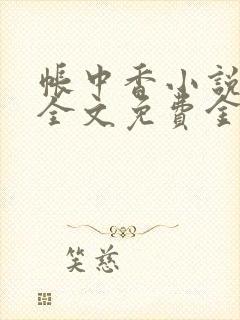 帐中香小説
全文免費全
笑慈